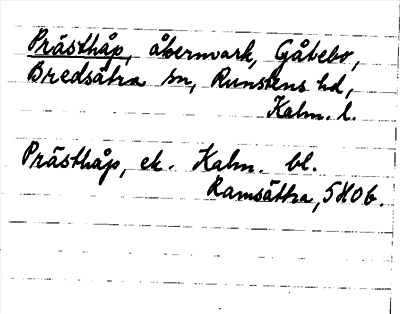 Prästhåp, åkermark, Gåtebo,
Bredsätra sn, Runstens hd,
Kalm. l.
Prästhåp, ek. Kalm. bl.
Ramsättra, 5H0b.